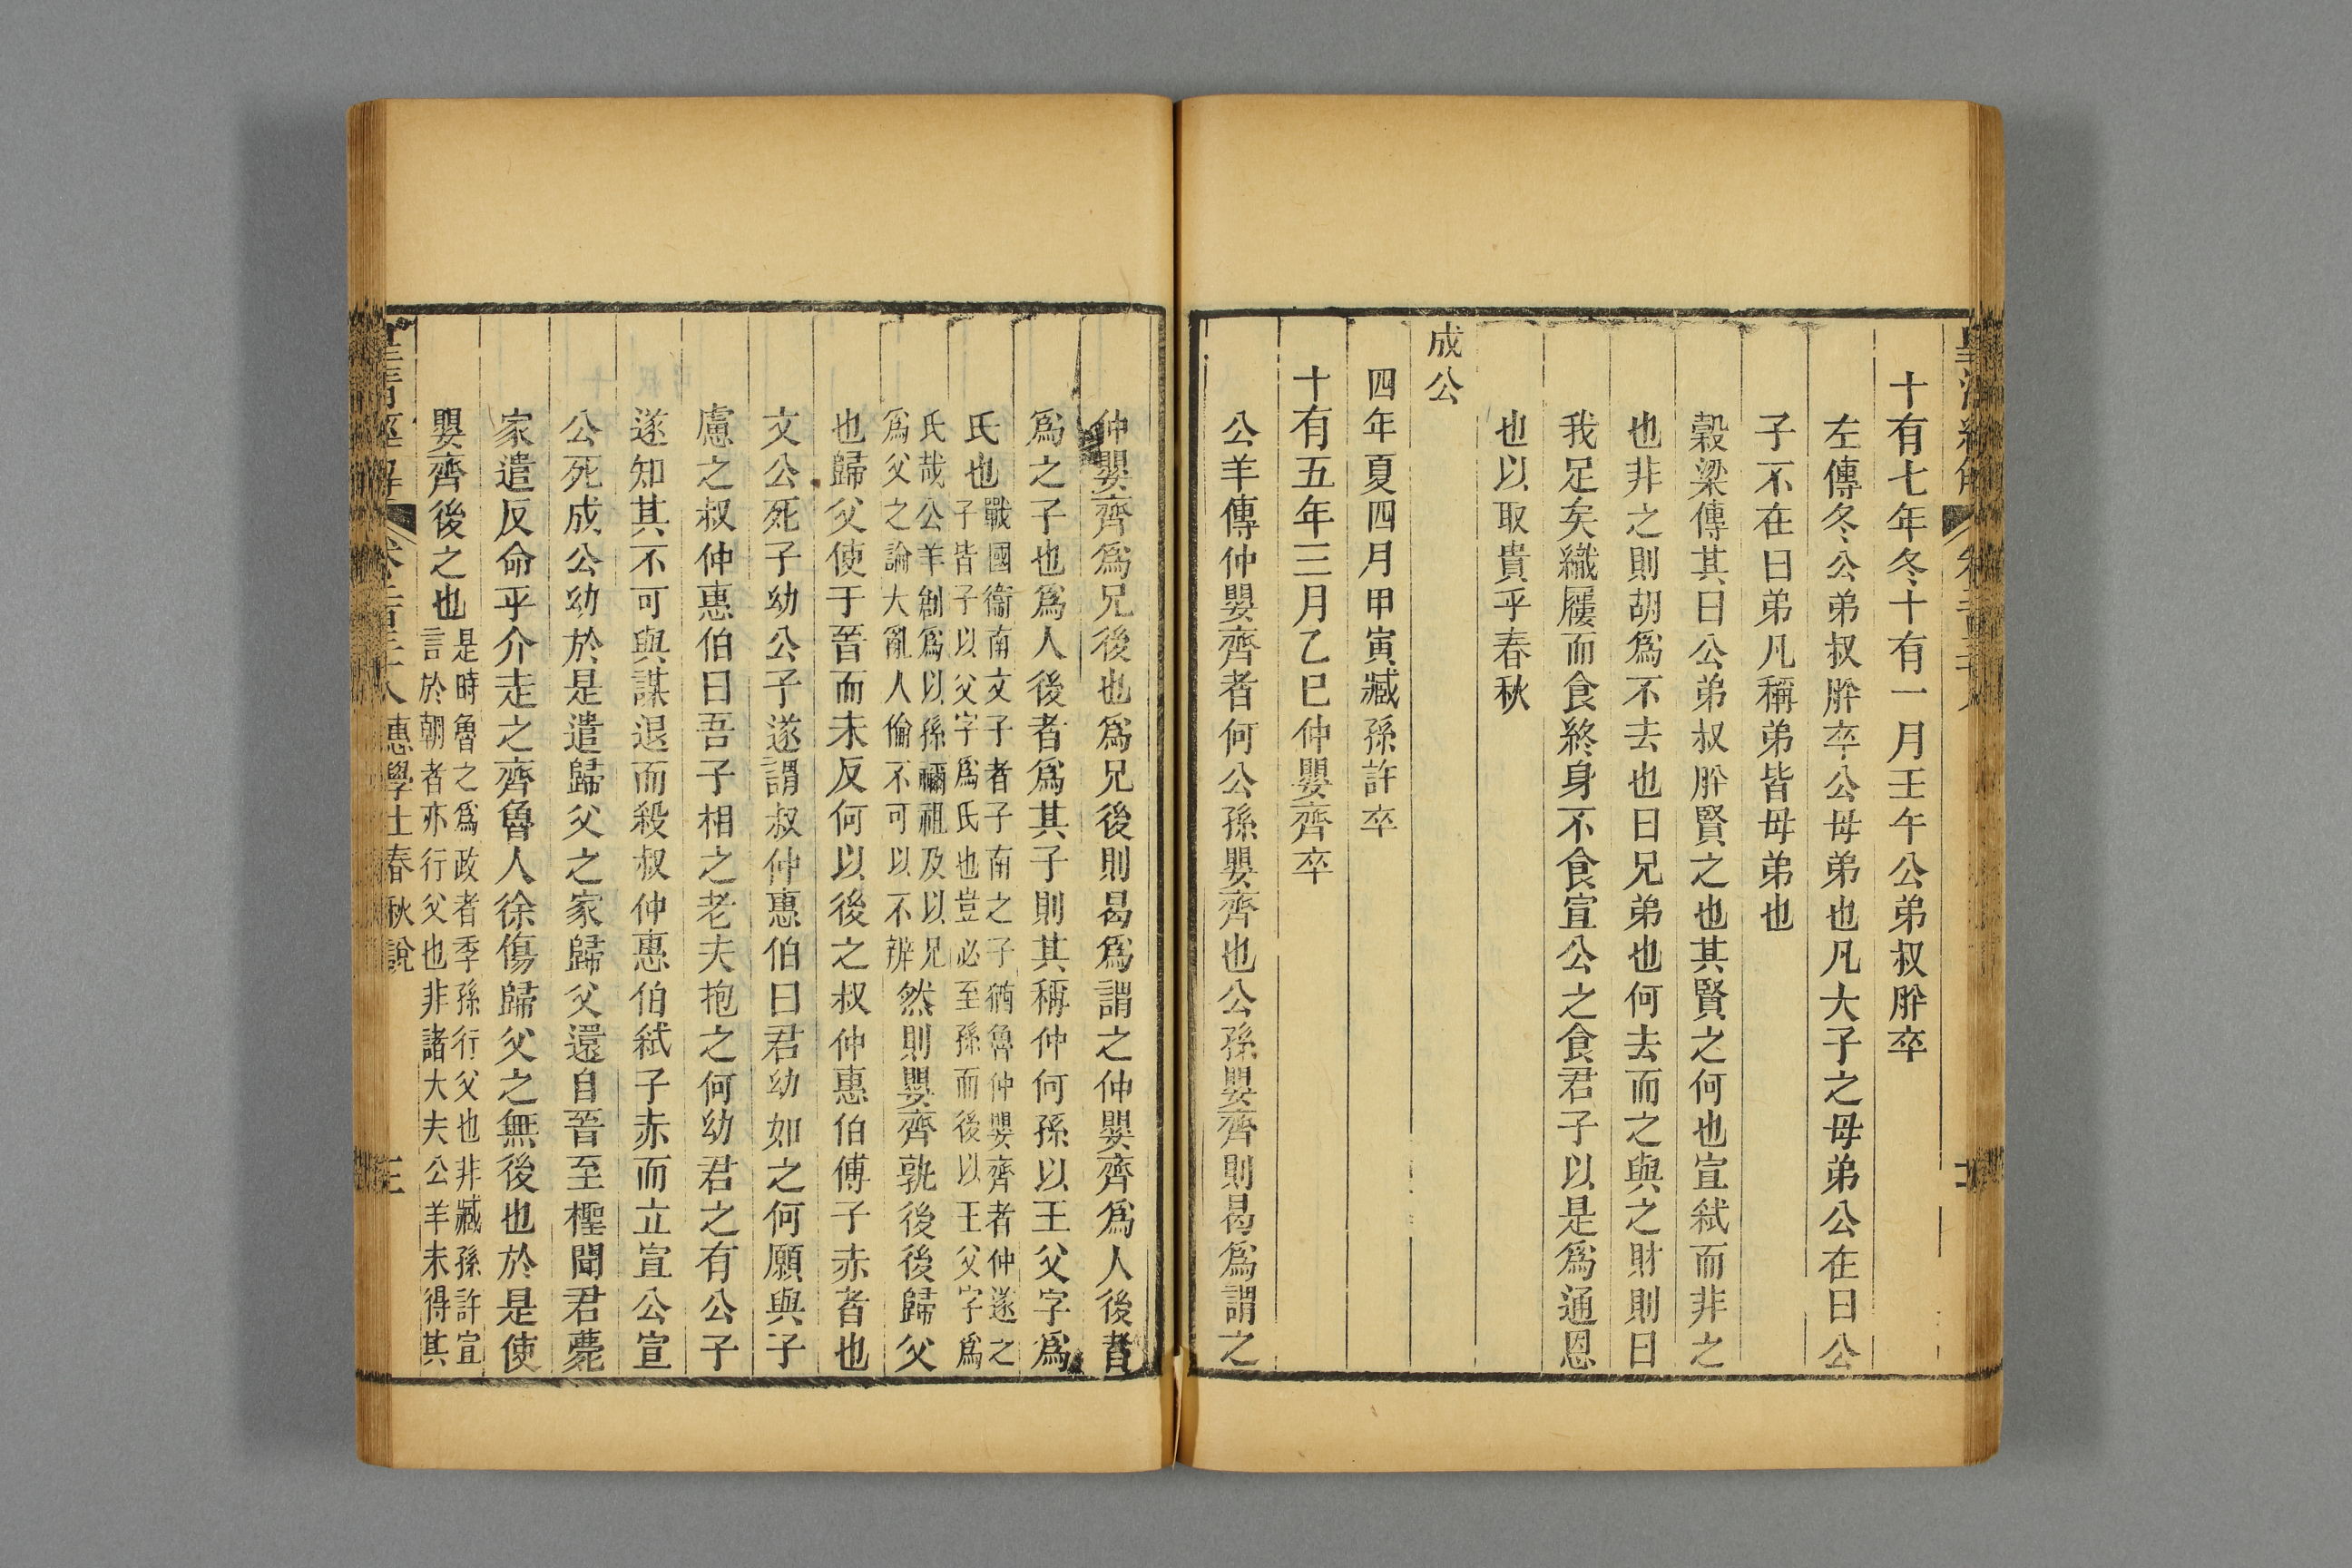 十有七年冬十有一月壬午公弟叔肸卒
左傳冬公弟叔肸卒公母弟也凡大子之母弟公在曰公
子不在曰弟凡稱弟皆母弟也
穀梁傳其曰公弟叔肸賢之也其賢之何也宣弒而非之
也非之則胡爲不去也曰兄弟也何去而之與之財則曰
我足矣織屨而食終身不食宣公之食君子以是爲通恩
也以取貴乎春秋
成公
四年夏四月甲寅臧孫許卒
十有五年三月乙巳仲嬰齊卒
公羊傳仲嬰齊者何公孫嬰齊也公孫嬰齊則曷爲謂之
仲嬰齊爲兄後也爲兄後則曷爲謂之仲嬰齊爲人後者
爲之子也爲人後者爲其子則其稱仲何孫以王父字爲
氏也戰國衞南文子者子南之子猶魯仲嬰齊者仲遂之
子皆子以父字爲氏也豈必至孫而後以王父字爲
氏哉公羊創爲以孫禰祖及以兄
爲父之論大亂人倫不可以不辨然則嬰齊孰後後歸父
也歸父使于晉而未反何以後之叔仲惠伯傅子赤者也
文公死子幼公子遂謂叔仲惠伯曰君幼如之何願與子
慮之叔仲惠伯曰吾子相之老夫抱之何幼君之有公子
遂知其不可與謀退而殺叔仲惠伯弒子赤而立宣公宣
公死成公幼於是遣歸父之家歸父還自晉至檉聞君薨
家遣反命乎介走之齊魯人徐傷歸父之無後也於是使
嬰齊後之也是時魯之爲政者季孫行父也非臧孫許宣
言於朝者亦行父也非諸大夫公羊未得其
皇清經解 卷二百三十八 惠學士春秋說 三